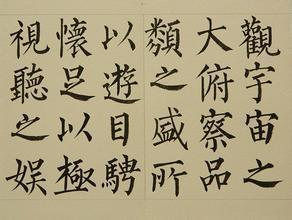 觀宇宙之
大俯察品
類之盛所
以遊目騁
懷足以極
視聽之娛